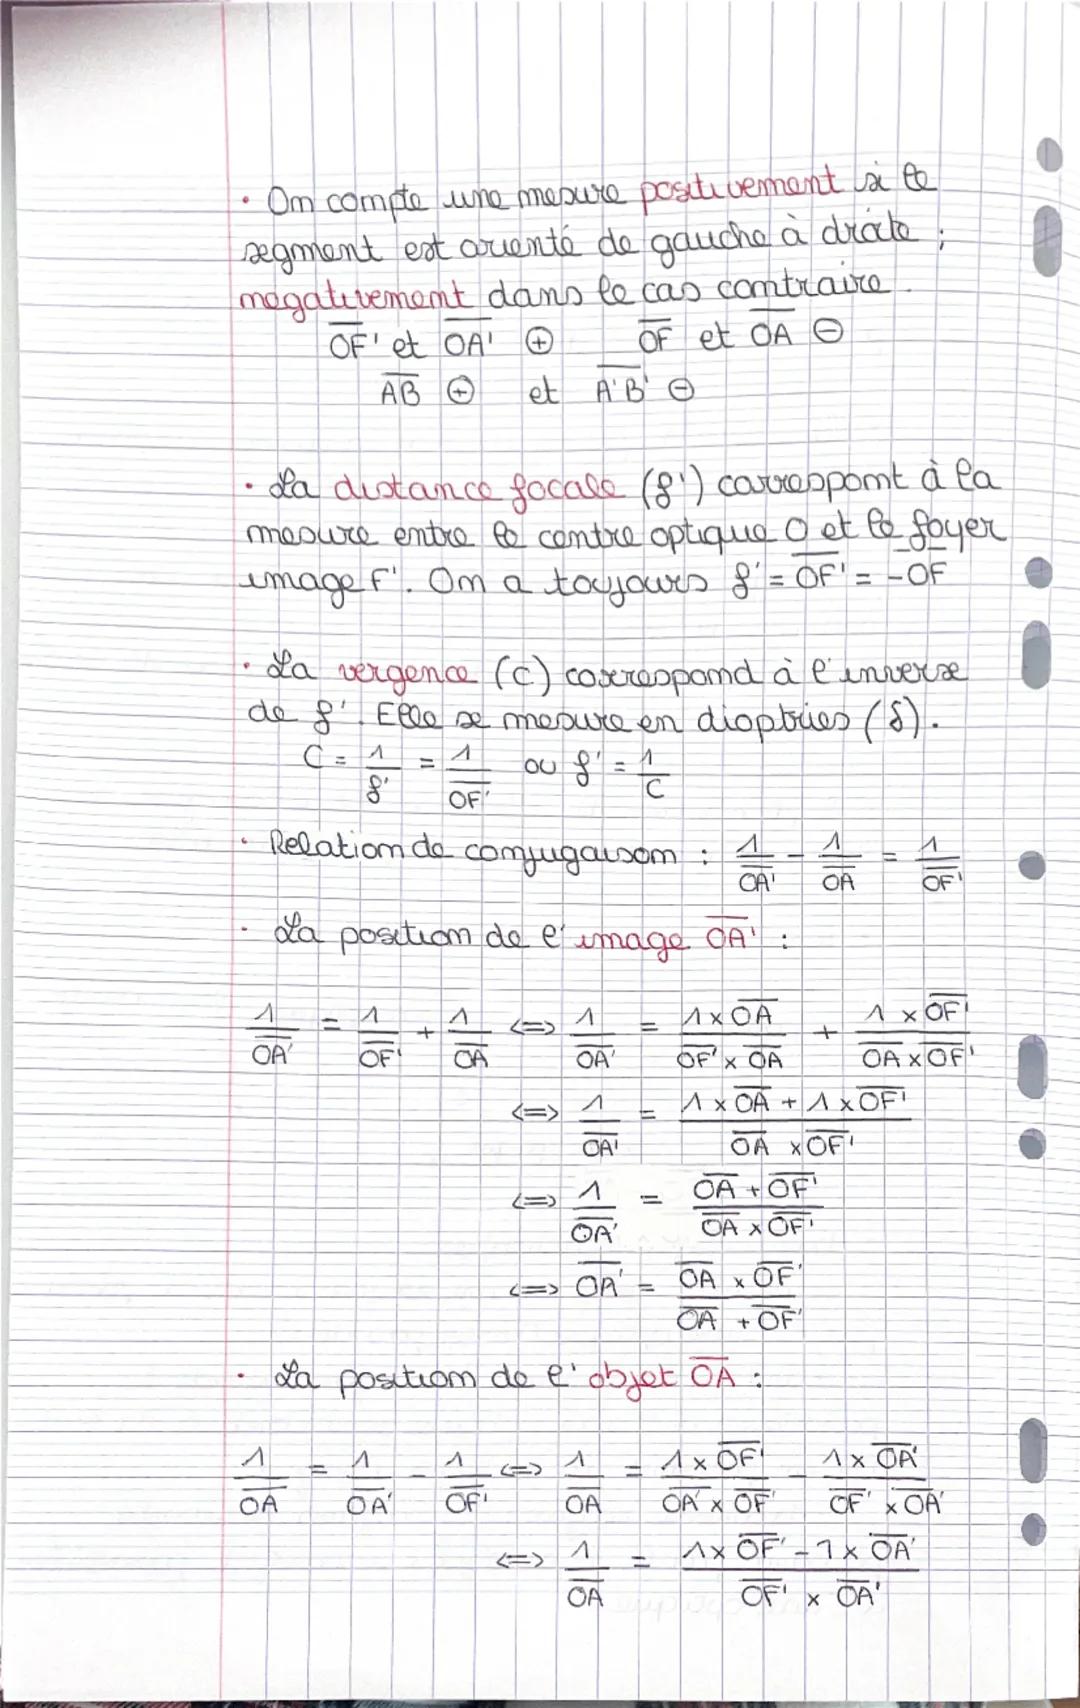 • On compte une mesure positivement si le
segment est orienté de gauche à droite ;
négativement dans le cas contraire.
OF' et OA' ⊕ OF et OA ⊖
AB ⊕ et A'B' ⊖
• La distance focale (f') correspont à la
mesure entre le centre optique O et le foyer
image F'. On a toujours f' = OF' = -OF
• La vergence (C) correspond à l'inverse
de f'. Elle se mesure en dioptries (δ).
C = 1/f' = 1/OF' ou f' = 1/C
• Relation de conjugaison : 1/OA' - 1/OA = 1/OF'
• La position de l'image OA' :
1/OA' = 1/OF' + 1/OA <=> 1/OA' = 1×OA/OF'×OA + 1×OF'/OA×OF'
<=> 1/OA' = 1×OA + 1×OF'/OA×OF'
<=> 1/OA' = OA + OF'/OA×OF'
<=> OA' = OA×OF'/OA + OF'
• La position de l'objet OA :
1/OA = 1/OA' - 1/OF' <=> 1/OA = 1×OF'/OA'×OF' - 1×OA'/OF'×OA'
<=> 1/OA = 1×OF' - 1×OA'/OF'×OA'